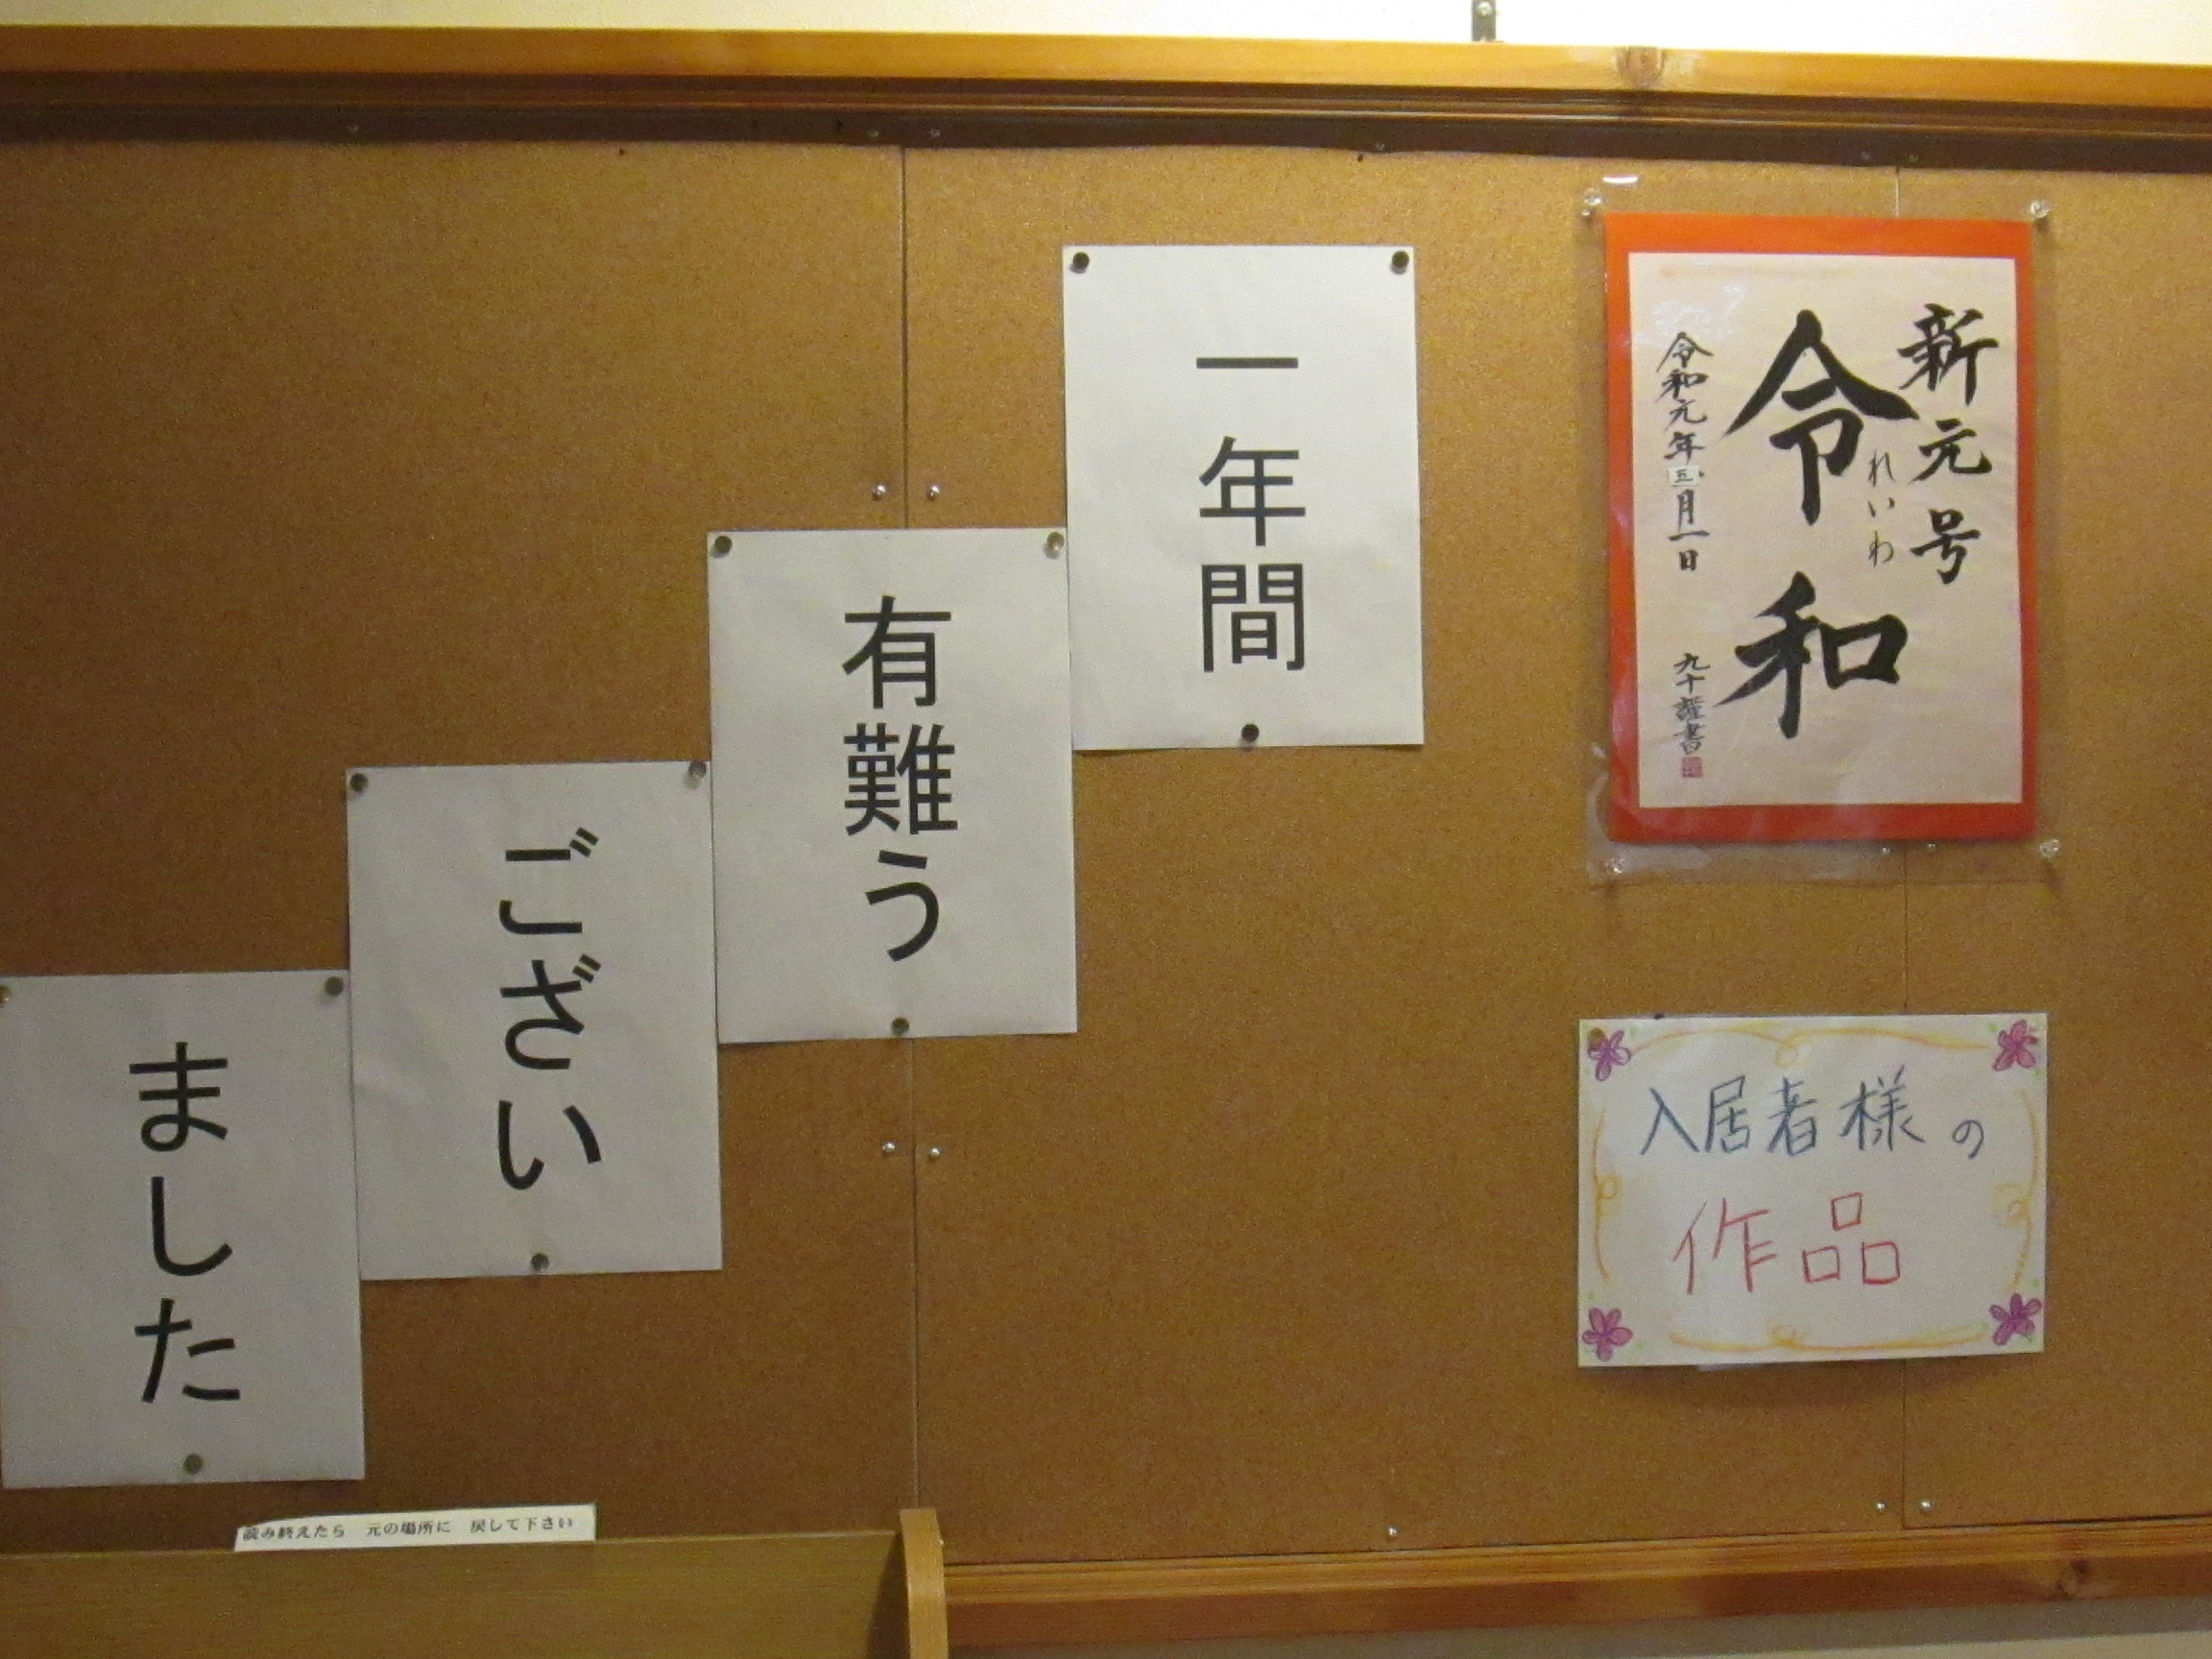 新元号
れいわ
令和
令和元年五月一日
九十謹書
一年間
有難う
ござい
ました
入居者様の
作品
読み終えたら 元の場所に 戻して下さい